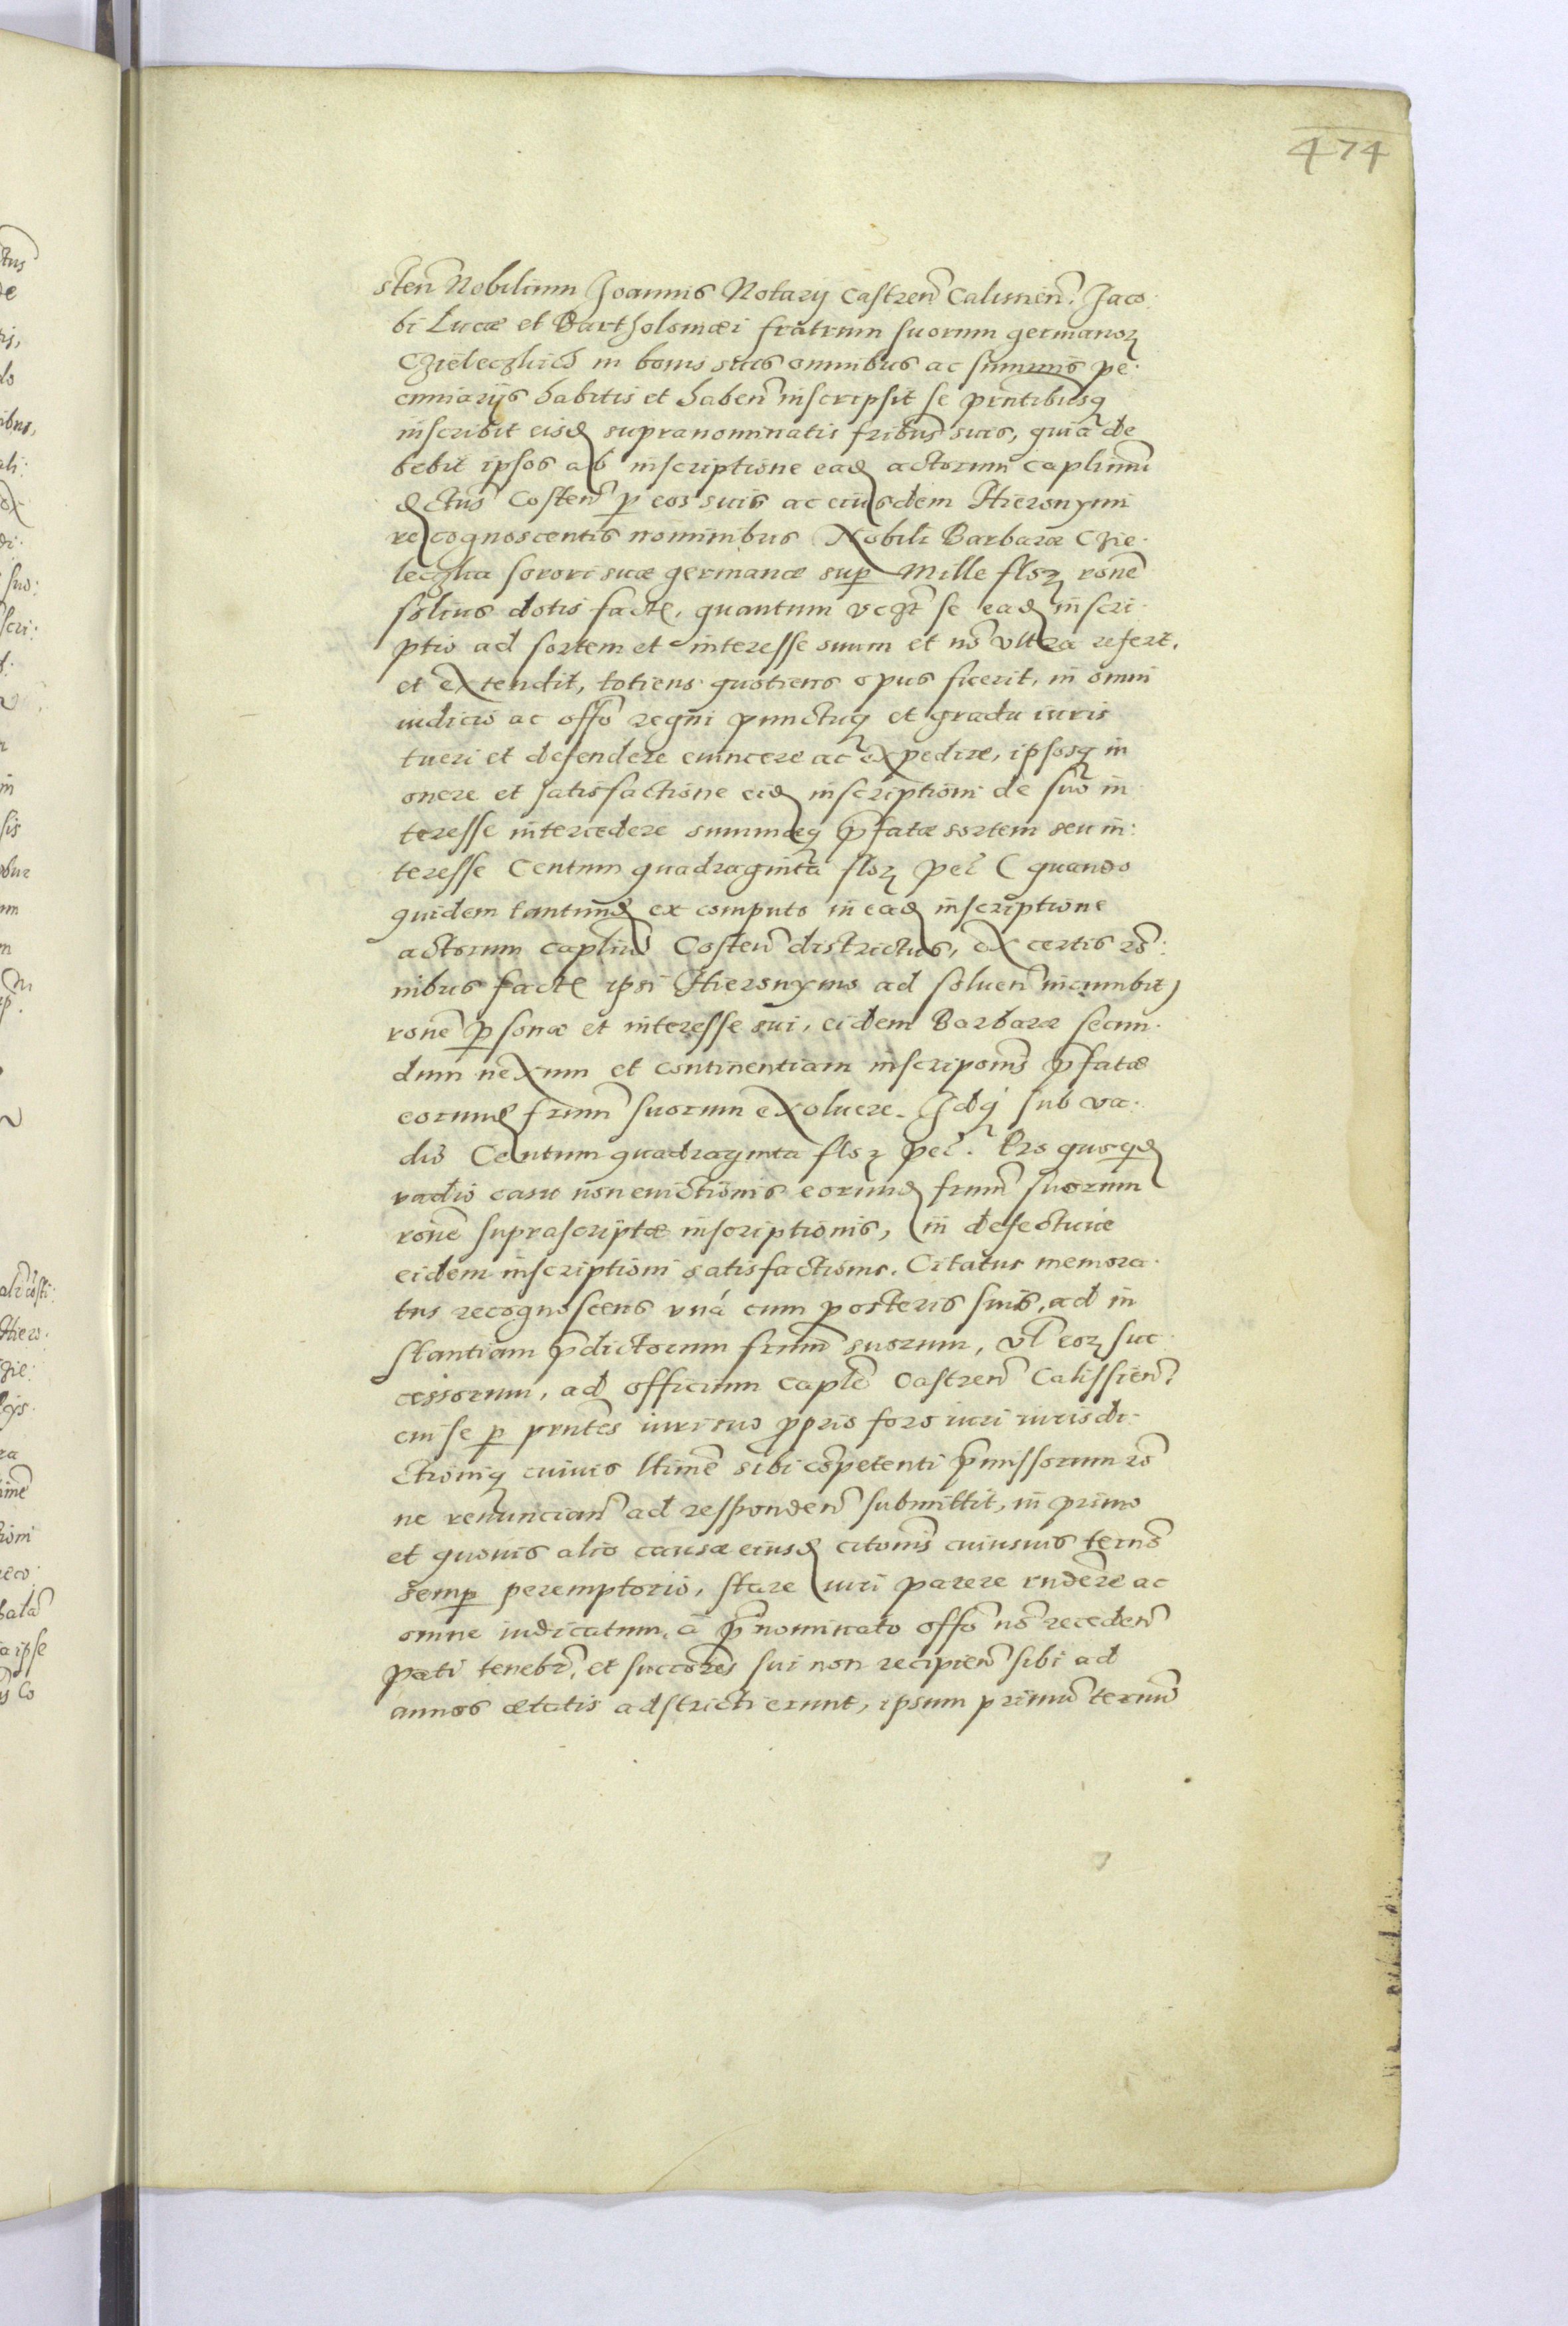 474
sten Nobilium Joannis Notarij Castren Calissien. Jaco
bi Lucæ et Bartholomæi fratrum suorum germanorꝫ
Czieleczkich in bonis suis omnibus ac summis pe
cuniarijs habitis et haben inscripsit se pñtibusqꝫ
inscribit eisd supranominatis fribus suis, quia de
bebit ipsos ab inscriptione ead actorum caplium
dctus Costen ꝑ eos suis ac eiusdem Hieronymi
recognoscentis nominibus Nobili Barbaræ Czie
leczka sorori suæ germanæ suꝑ Mille florꝫ rone
solius dotis facte, quantum vcqr se ead inscri
ptio ad sortem et interesse suum et no vltra refert,
et extendit, totiens quotiens opus fuerit, in omni
iudicio ac offo regni punctuqꝫ et gradu iuris
tueri et defendere euincere ac expedire, ipsosqꝫ in
onere et satisfactione eid inscriptioni de suo in
teresse intercedere summæqꝫ p̃fatæ sortem seu in:
teresse Centum quadraginta florꝫ pel (quando
quidem tantund ex computo in ead inscriptione
actorum caplium Costen districtus, ex certis ro:
nibus facte ipsi Hieronymo ad soluen incumbit)
rone ꝑsonæ et interesse sui, eidem Barbaræ secun
dum nexum et continentiam inscriponis p̃fatæ
eorund frum suorum exoluere. Idqꝫ sub va
dio Centum quadraginta florꝫ pel. Pro quoqd
vadio casu non euictionis eorund frum suorum
rone suprascriptæ inscriptionis, in defectuue
eidem inscriptioni satisfactionis. Citatus memora
tus recognoscens vná cum posteris suis, ad in
stantiam p̃dictorum frum suorum, vl eorꝫ suc
cessorum, ad officium caple Castren Calissien,
cui se ꝑ pñtes iuri suo proprio foro iuri iurisdi
ctioniqꝫ cuiuis ltime sibi competenti p̃missorum ro
ne renuncian ad responden submittit, in primo
et quouis alio causæ eiusd citonis cuiusuis termo
semꝑ peremptorio, stare iuri parere rndere ac
omne iudicatum, a p̃nominato offo no receden
pati tenebr, et succores sui non recipien sibi ad
annos ætatis adstricti erunt, ipsum primum termu